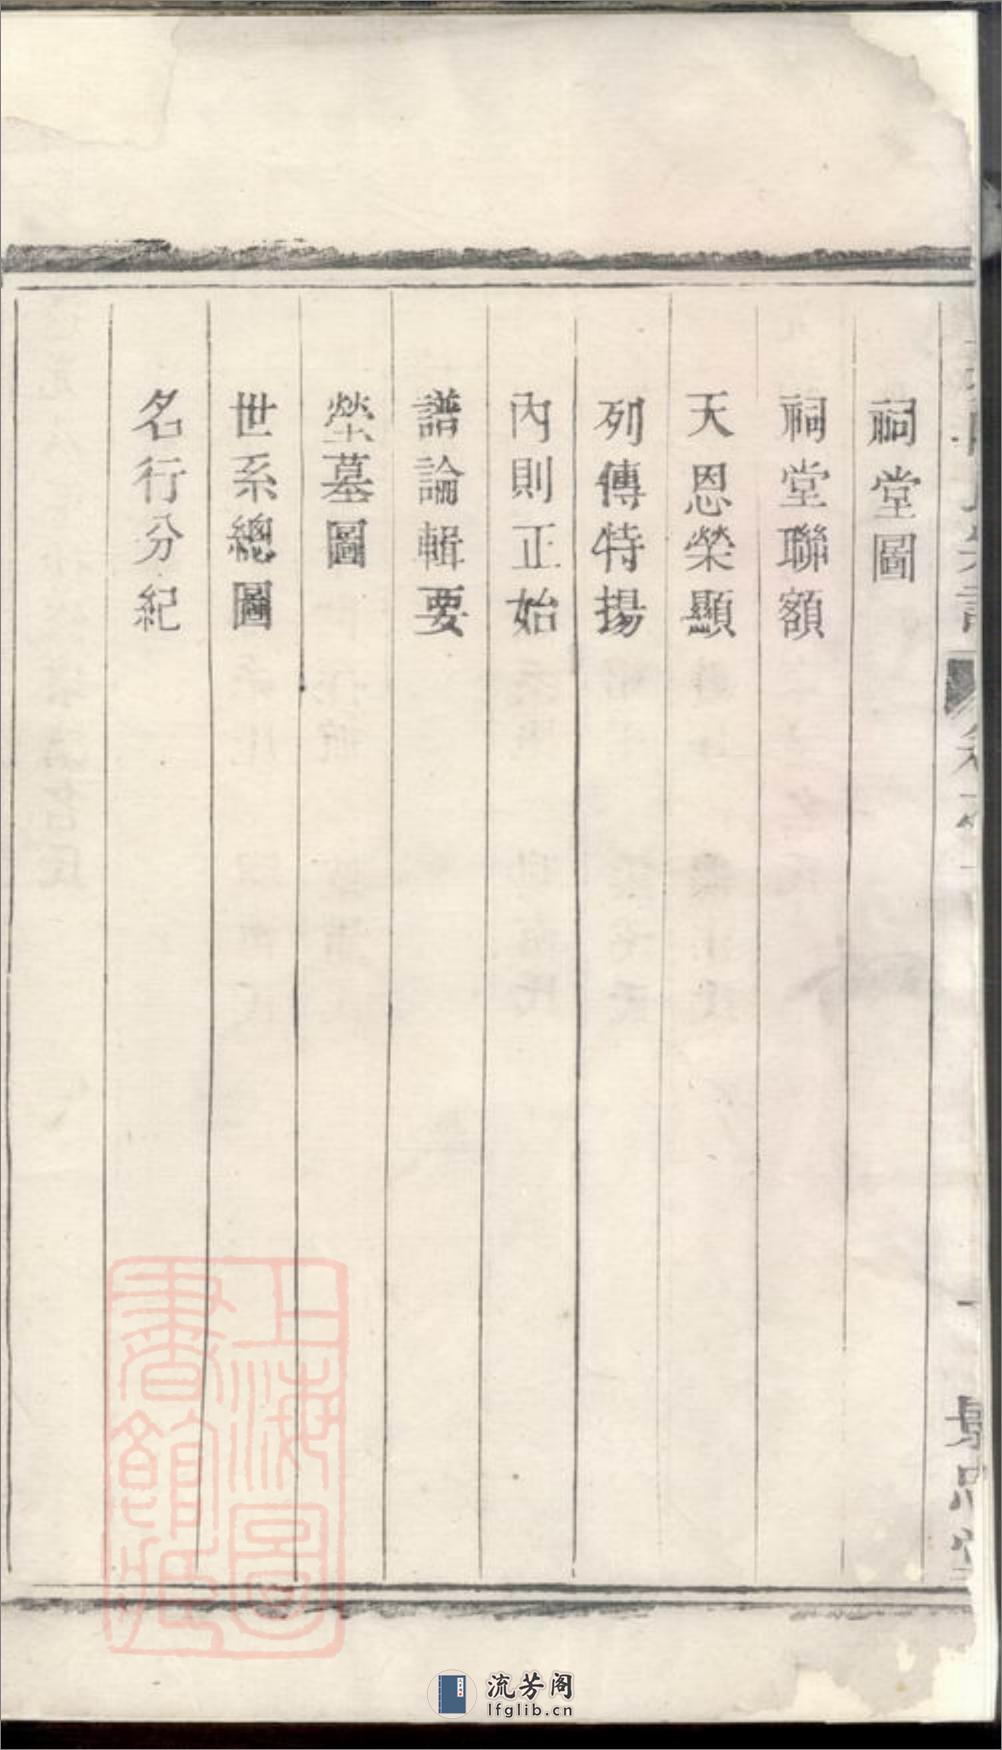 祠堂圖
祠堂聯額
天恩榮顯
列傳特揚
內則正始
譜論輯要
塋墓圖
世系總圖
名行分紀
上海圖
書館藏
流芳阁
lfglib.cn